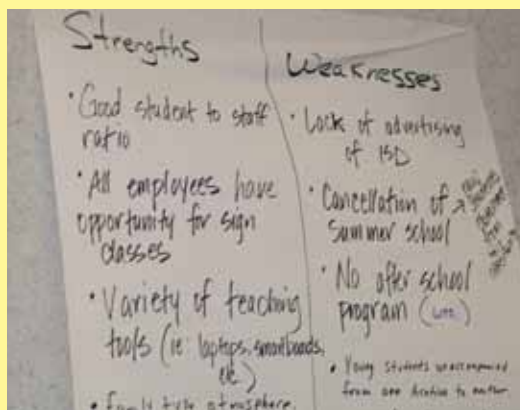 Strengths
• Good student to staff
ratio
• All employees have
opportunity for sign
classes
• Variety of teaching
tools (ie: laptops, smartboards,
etc)
• family type atmosphere,
Weaknesses
• Lack of advertising
of ISD
• Cancellation of
summer school
• No after school
program
• Young students unaccompanied
from one location to another